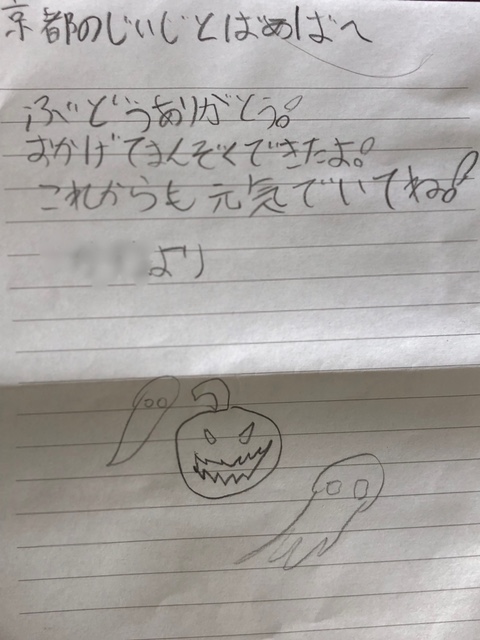 京都のじいじとばあばへ
ぶどうありがとう。
おかげでまんぞくできたよ。
これからも元気でいてね。
より